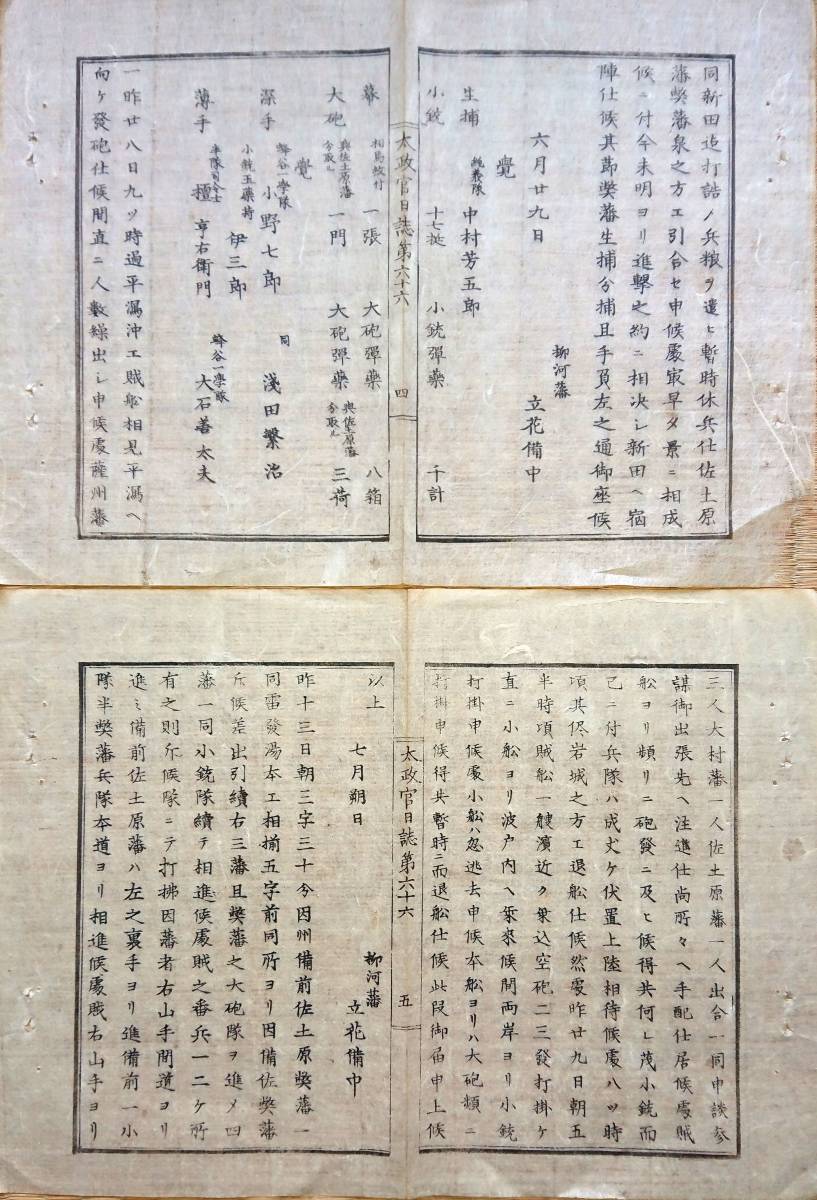 同新田迄打詰ノ兵粮ヲ遣ヒ暫時休兵仕佐土原
藩獎藩泉之方エ引合セ申候處最早夕景ニ相成
候ニ付今未明ヨリ進擊之約ニ相決シ新田ヘ宿
陣仕候其節獎藩生捕分捕且手負左之通御座候
六月廿九日
柳河藩
立花備中
覺
生捕
純義隊
中村芳五郎
小銃
十七挺
小銃彈藥
千計
太政官日誌第六十六
四
幕
相馬紋付
一張
大砲彈藥
八箱
大砲
與佐土原藩分取ル
一門
大砲彈藥
與佐土原藩分取ル
三荷
覺
深手
蜂谷一學隊
小野七郎
同
淺田繁治
小銃玉藥持
伊三郎
薄手
半隊司令士
檀亨右衛門
蜂谷一學隊
大石善太夫
一昨廿八日九ツ時過平潟沖エ賊船相見平潟ヘ
向ケ發砲仕候間直ニ人數繰出シ申候處薩州藩
三人大村藩一人佐土原藩一人出合一同申談參
謀御出張先ヘ注進仕尚所々ヘ手配仕居候處賊
船ヨリ頻リニ砲發ニ及ヒ候得共何レ茂小銃而
已ニ付兵隊ハ成丈ケ伏置上陸相待候處八ツ時
頃其侭岩城之方エ退船仕候然處昨廿九日朝五
半時頃賊船一艘濱近ク乗込空砲二三發打掛ケ
直ニ小船ヨリ波戸內ヘ乗來候間両岸ヨリ小銃
打掛申候處小船ハ忽逃去申候本船ヨリハ大砲頻ニ
打掛申候得共暫時ニ而退船仕候此段御届申上候
太政官日誌第六十六
五
以上
七月朔日
柳河藩
立花備中
昨十三日朝三字三十今因州備前佐土原獎藩一
同雷發湯本エ相揃五字前同所ヨリ因備佐獎藩
斥候差出引續右三藩且獎藩之大砲隊ヲ進メ四
藩一同小銃隊續テ相進候處賊之番兵一二ケ所
有之則斥候隊ニテ打拂因藩者右山手間道ヨリ
進ミ備前佐土原藩ハ左之裏手ヨリ進備前一小
隊半獎藩兵隊本道ヨリ相進候處賊右山手ヨリ